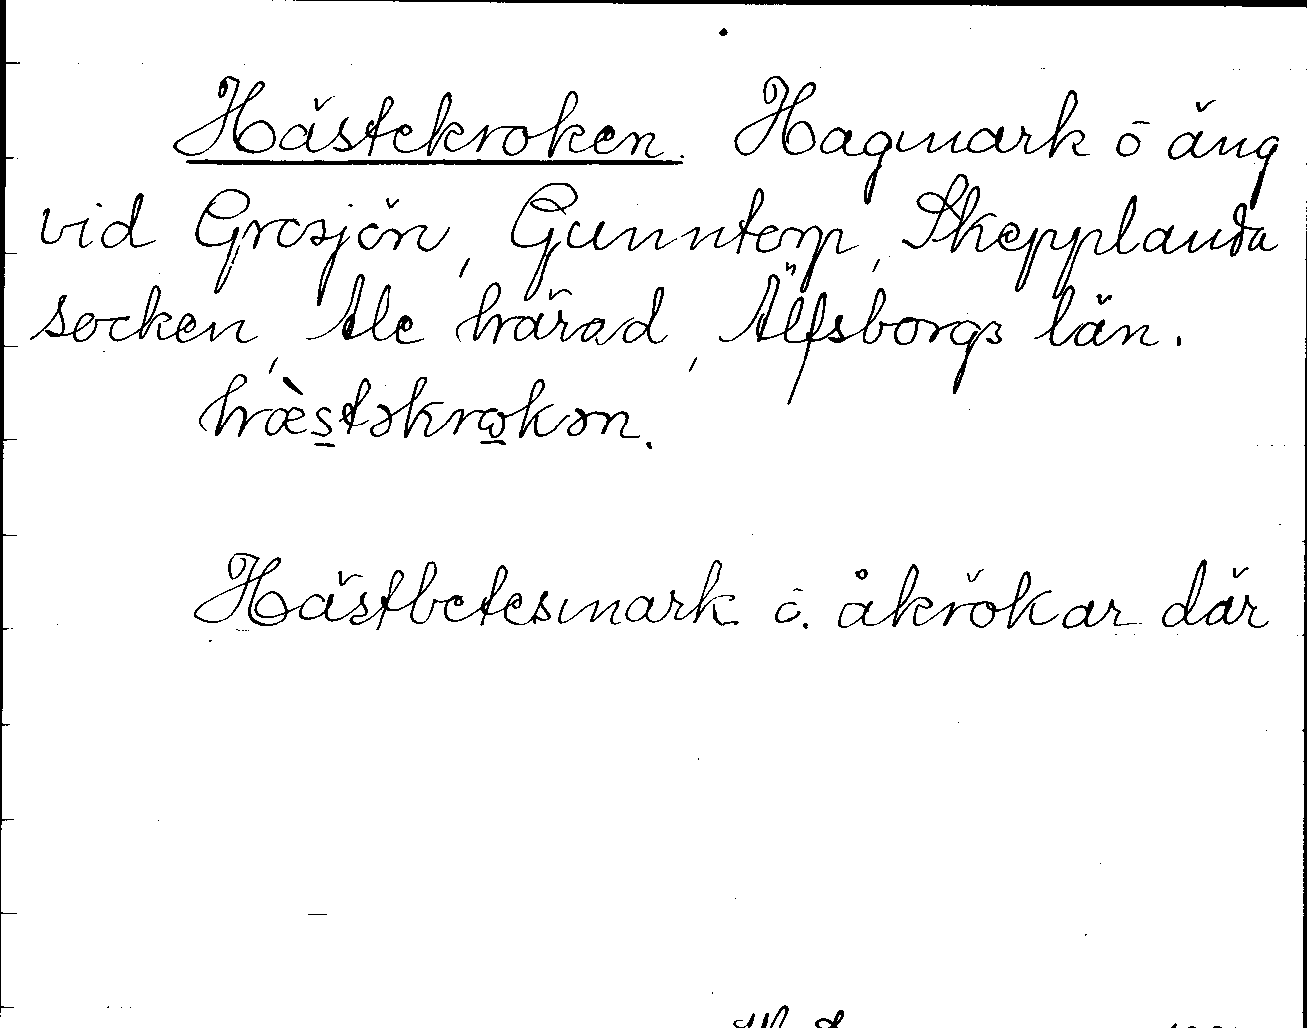 Hästekroken. Hagmark ō äng
vid Grosjön, Gunntorp, Skepplanda
socken, Ale härad, Älfsborgs län.
hæ̀s̲təkrω̲kən.
Hästbetesmark ō. åkrökar där